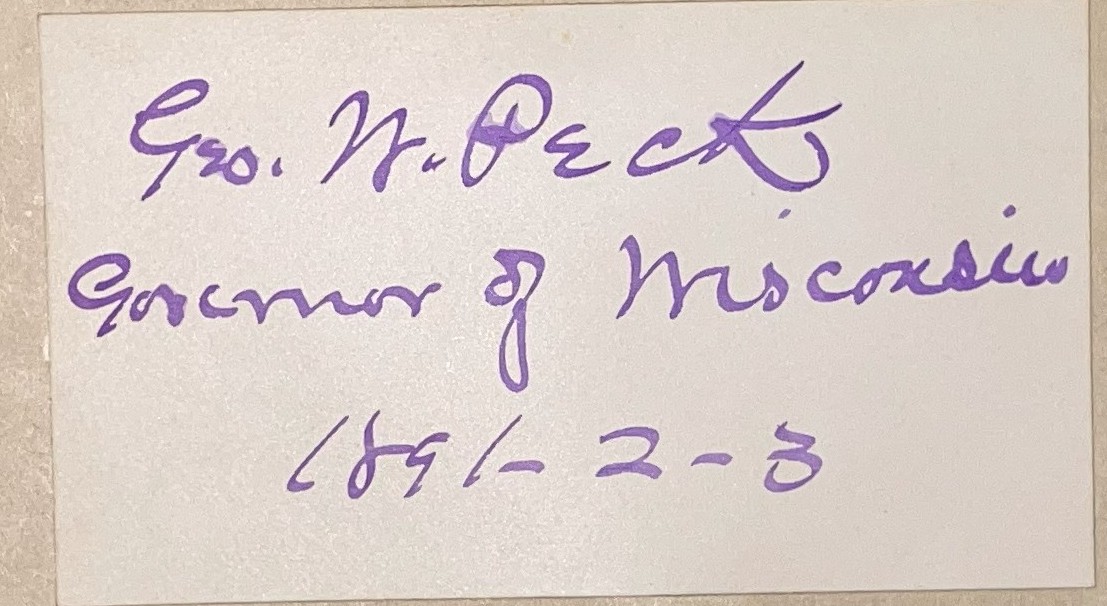 Geo. W. Peck
Governor of Wisconsin
1891-2-3